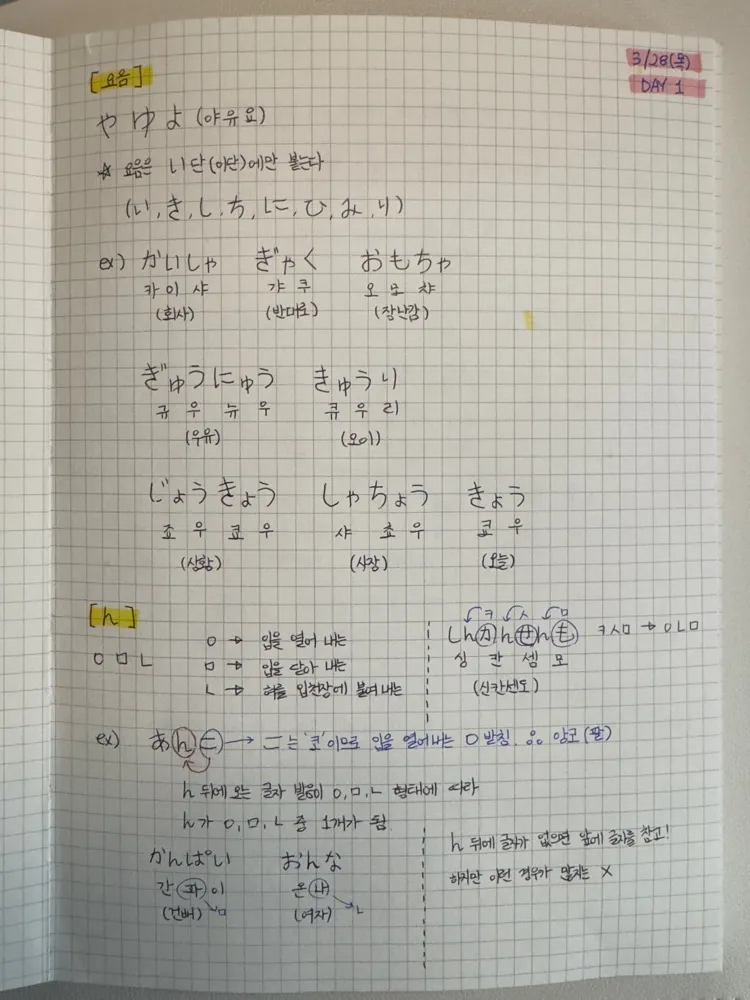 3/28(목)
DAY 1
[요음]
や ゆ よ (야 유 요)
☆ 요음은 い단(이단)에만 붙는다
(い, き, し, ち, に, ひ, み, り)
ex) かいしゃ ぎゃく おもちゃ
카 이 샤 갸 쿠 오 모 챠
(회사) (반대로) (장난감)
ぎゅうにゅう きゅうり
규 우 뉴 우 큐 우 리
(우유) (오이)
じょうきょう しゃちょう きょう
죠 우 쿄 우 샤 쵸 우 쿄 우
(상황) (사장) (오늘)
[ん]
ㅇ ㅁ ㄴ
ㅇ → 입을 열어 내는
ㅁ → 입을 닫아 내는
ㄴ → 혀를 입천장에 붙여 내는
ㅋ ㅅ ㅁ
しんかんせんも ㅋㅅㅁ → ㅇㄴㅁ
싱 칸 셈 모
(신칸센도)
ex) あんこ → こ는 '코'이므로 입을 열어내는 ㅇ받침. ∴ 앙코 (팥)
ん 뒤에 오는 글자 발음이 ㅇ,ㅁ,ㄴ 형태에 따라
ん가 ㅇ,ㅁ,ㄴ 중 1개가 됨.
かんぱい おんな
간 파 이 온 나
(건배) ㅁ (여자) ㄴ
ん 뒤에 글자가 없으면 앞에 글자를 참고!
하지만 이런 경우가 많지는 X